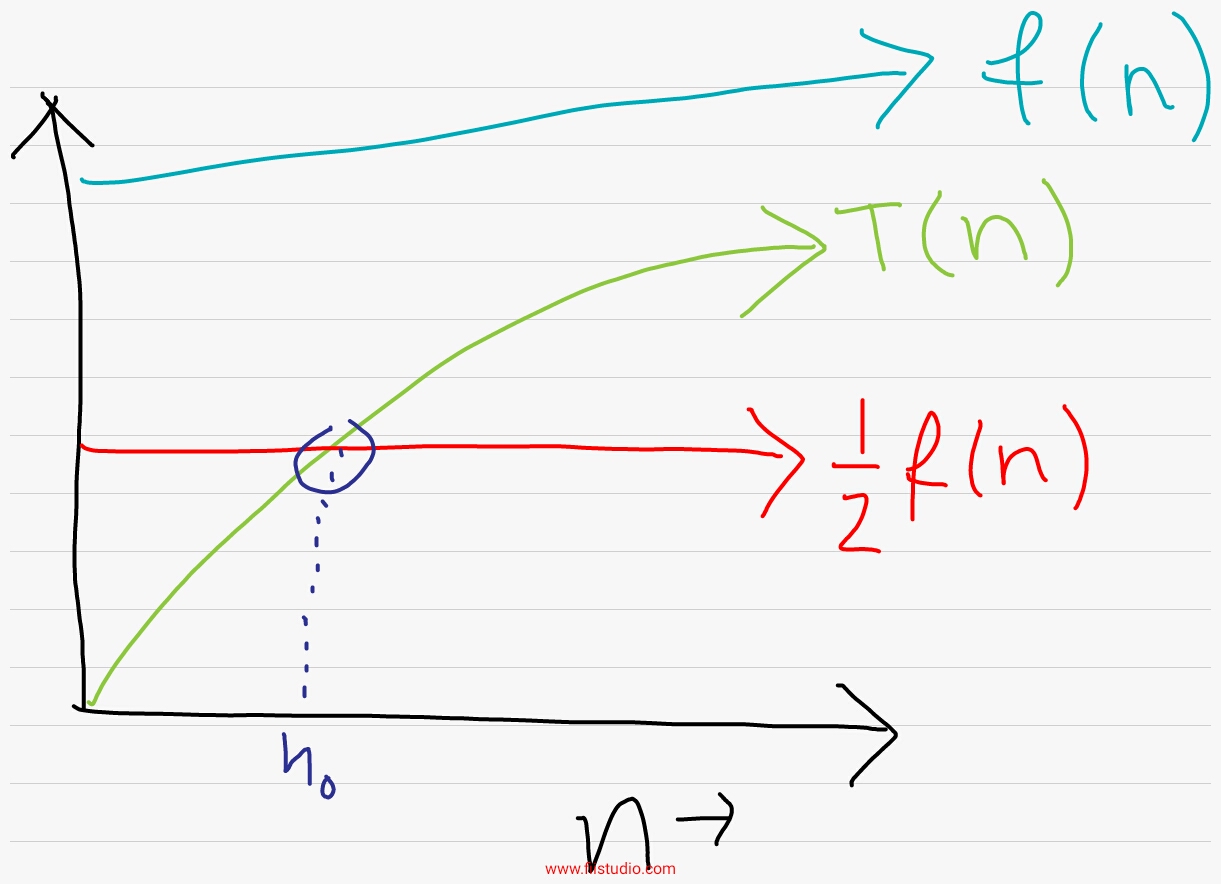 f(n)
T(n)
1/2 f(n)
n₀
n →
www.fiistudio.com